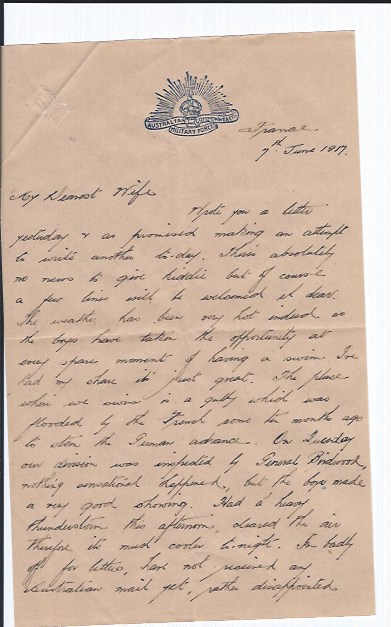 AUSTRALIAN COMMONWEALTH
MILITARY FORCES
France
7th June 1917.
My Dearest Wife
Wrote you a letter
yesterday & as promised making an attempt
to write another to-day. There's absolutely
no news to give kiddie but of course
a few lines will be welcomed eh dear.
The weather has been very hot indeed so
the boys have taken the opportunity at
every spare moment of having a swim I've
had my share it's just great. The place
where we swim is a gully which was
flooded by the French some ten months ago
to stem the German advance. On Tuesday
our division was inspected by General Birdwood,
nothing sensational happened, but the boys made
a very good showing. Had a heavy
thunderstorm this afternoon, cleared the air
therefore its much cooler to-night. Im badly
off for letters, have not received any
Australian mail yet, rather disappointed